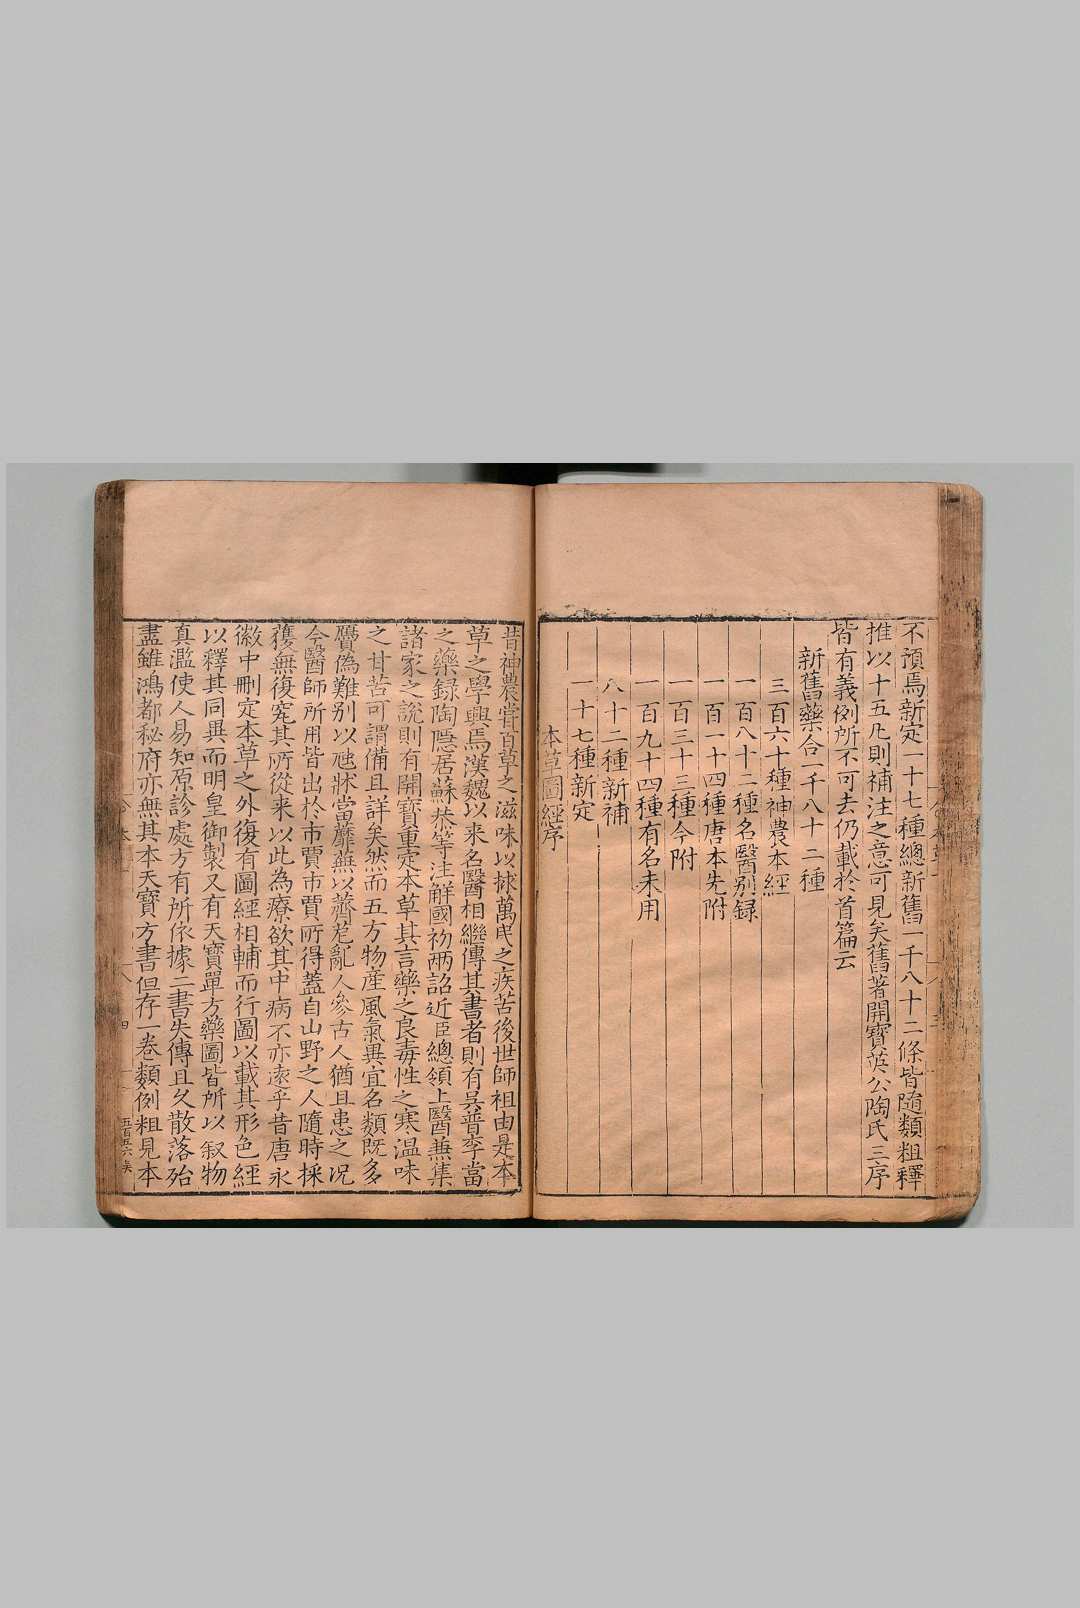 不預焉新定一十七種總新舊一千八十二條皆隨類粗釋
推以十五凡則補注之意可見矣舊著開寶英公陶氏三序
皆有義例所不可去仍載於首篇云
新舊藥合一千八十二種
三百六十種神農本經
一百八十二種名醫别録
一百一十四種唐本先附
一百三十三種今附
一百九十四種有名未用
八十二種新補
一十七種新定
本草圖經序
昔神農嘗百草之滋味以拯萬民之疾苦後世師祖由是本
草之學興焉漢魏以來名醫相繼傳其書者則有吳普李當
之藥録陶隱居蘇恭等注解國初兩詔近臣總領上醫兼集
諸家之說則有開寶重定本草其言藥之良毒性之寒温味
之甘苦可謂備且詳矣然而五方物產風氣異宜名類既多
贗偽難别以虺牀當蘼蕪以薺苨亂人參古人猶且患之况
今醫師所用皆出於市賈市賈所得蓋自山野之人隨時採
獲無復究其所從来以此為療欲其中病不亦遠乎昔唐永
徽中刪定本草之外復有圖經相輔而行圖以載其形色經
以釋其同異而明皇御製又有天寶單方藥圖皆所以叙物
真濫使人易知原診處方有所依據二書失傳且久散落殆
盡雖鴻都秘府亦無其本天寶方書但存一卷類例粗見本
四